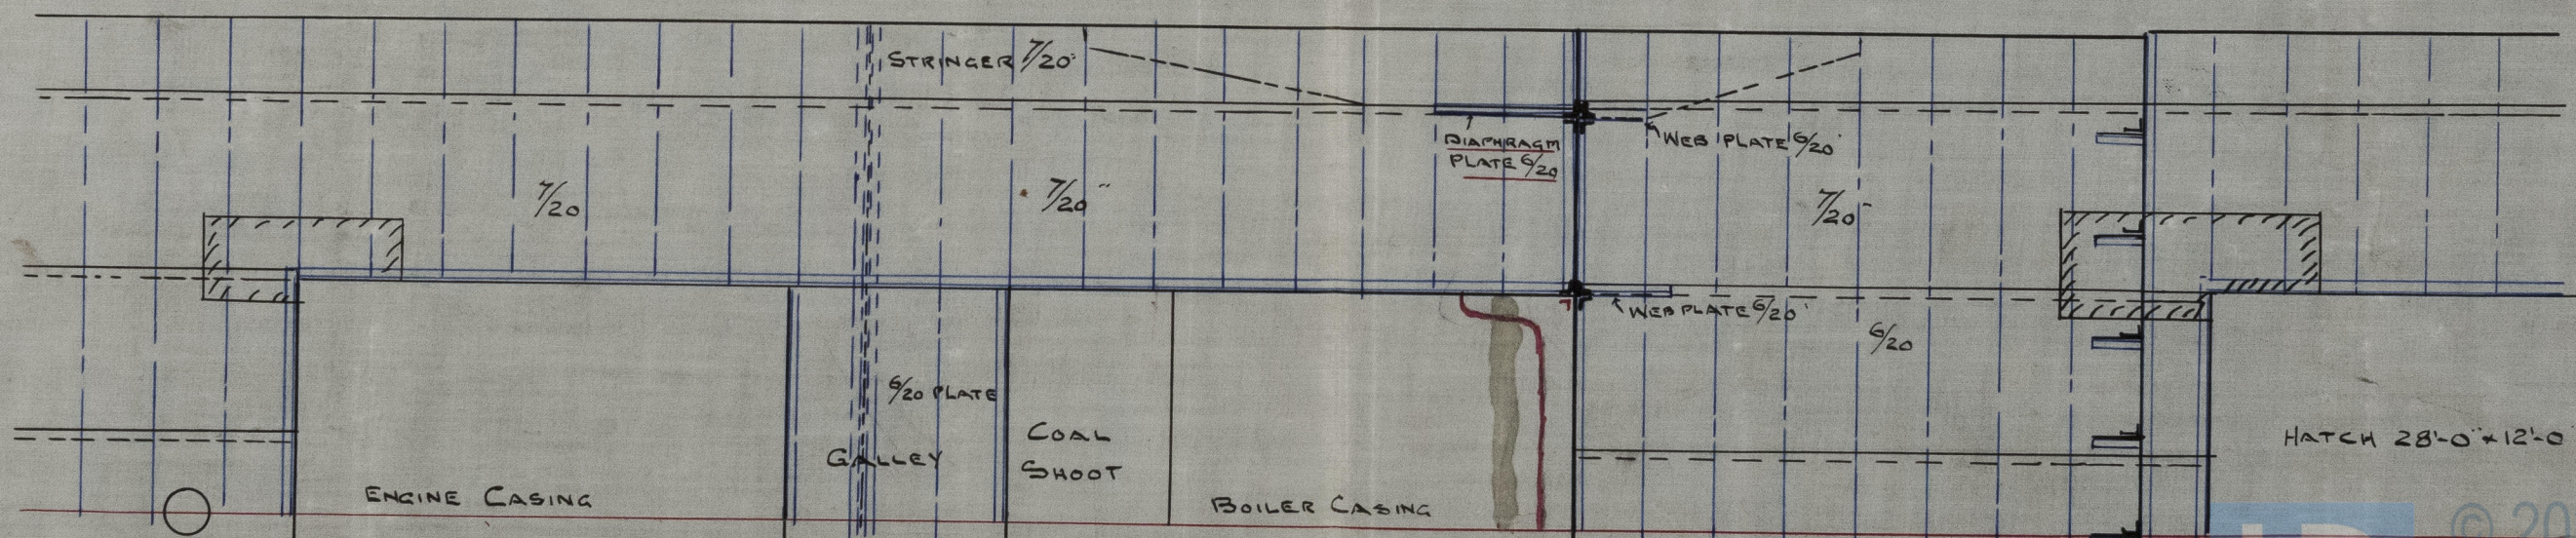 STRINGER 7/20"
DIAPHRAGM
PLATE 6/20
WEB PLATE 6/20"
7/20
7/20"
7/20"
WEB PLATE 6/20"
6/20
6/20 PLATE
COAL
SHOOT
GALLEY
HATCH 28'-0" x 12'-0
ENGINE CASING
BOILER CASING
© 20